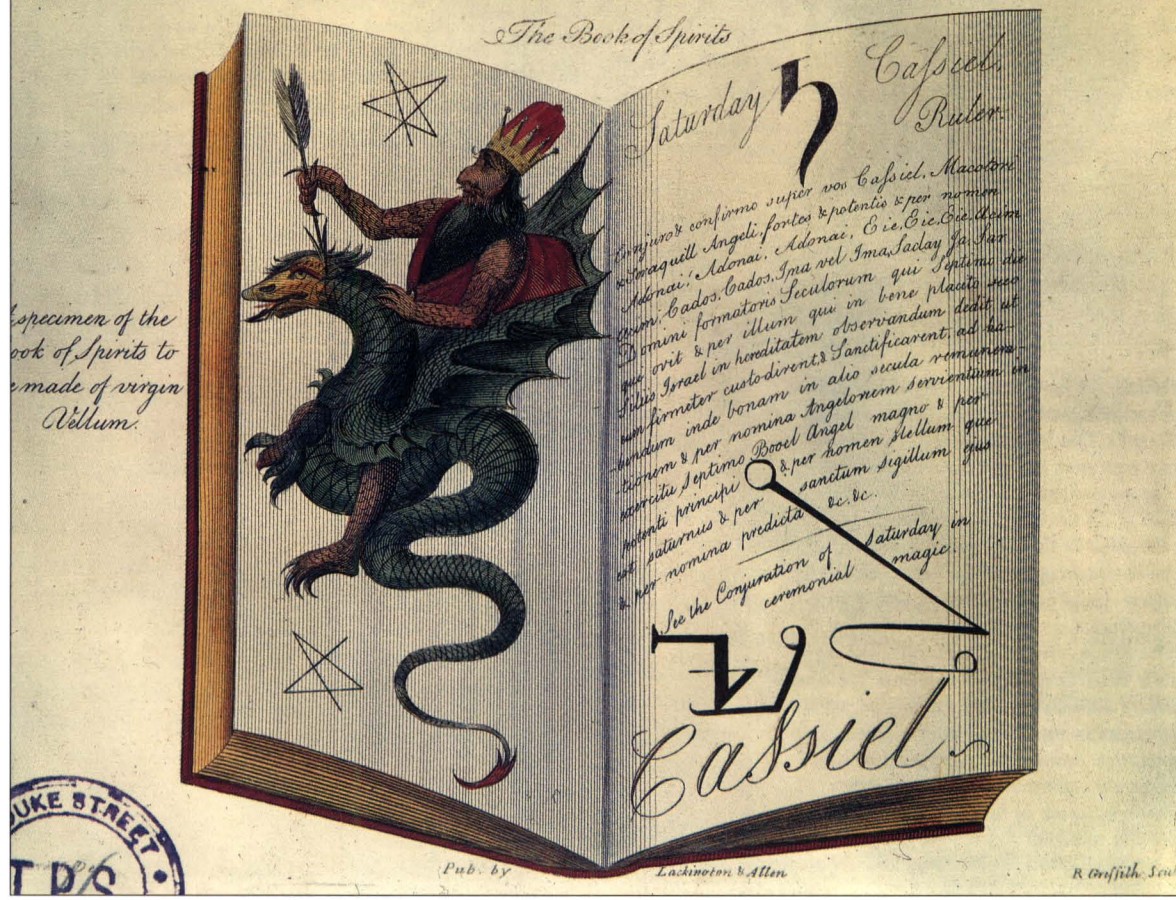 The Book of Spirits
specimen of the
ook of Spirits to
e made of virgin
Vellum.
Saturday ♄ Caſsiel.
Ruler.
Conjuro & confirmo super vos Caſsiel, Macotori
& Seraquiell Angeli, fortes & potentis & per nomen
Adonai, Adonai, Adonai, Eie, Eie, Eie, Acim
acim, Cados, Cados, Ina vel Ima, Saday Ja, Sar
Domini formatoris Seculorum qui Septimo die
que ovit & per illum qui in bene placito seco
filiis Israel in hereditatem observandum dedit, ut
eum firmeter custodirent, & Sanctificarent, ad ha-
bendum inde bonam in alio secula remunera-
tionem & per nomina Angelorum servientium in
exercitu septimo Booel Angel magno & per
potenti principi & per nomen stellum que
est saturnus & per sanctum sigillum ejus
& per nomina predicta &c. &c.
See the Conjuration of Saturday in
ceremonial magic.
Caſsiel
UKE STREET
T P S
Pub. by Lackington & Allen
R Griffith Scu